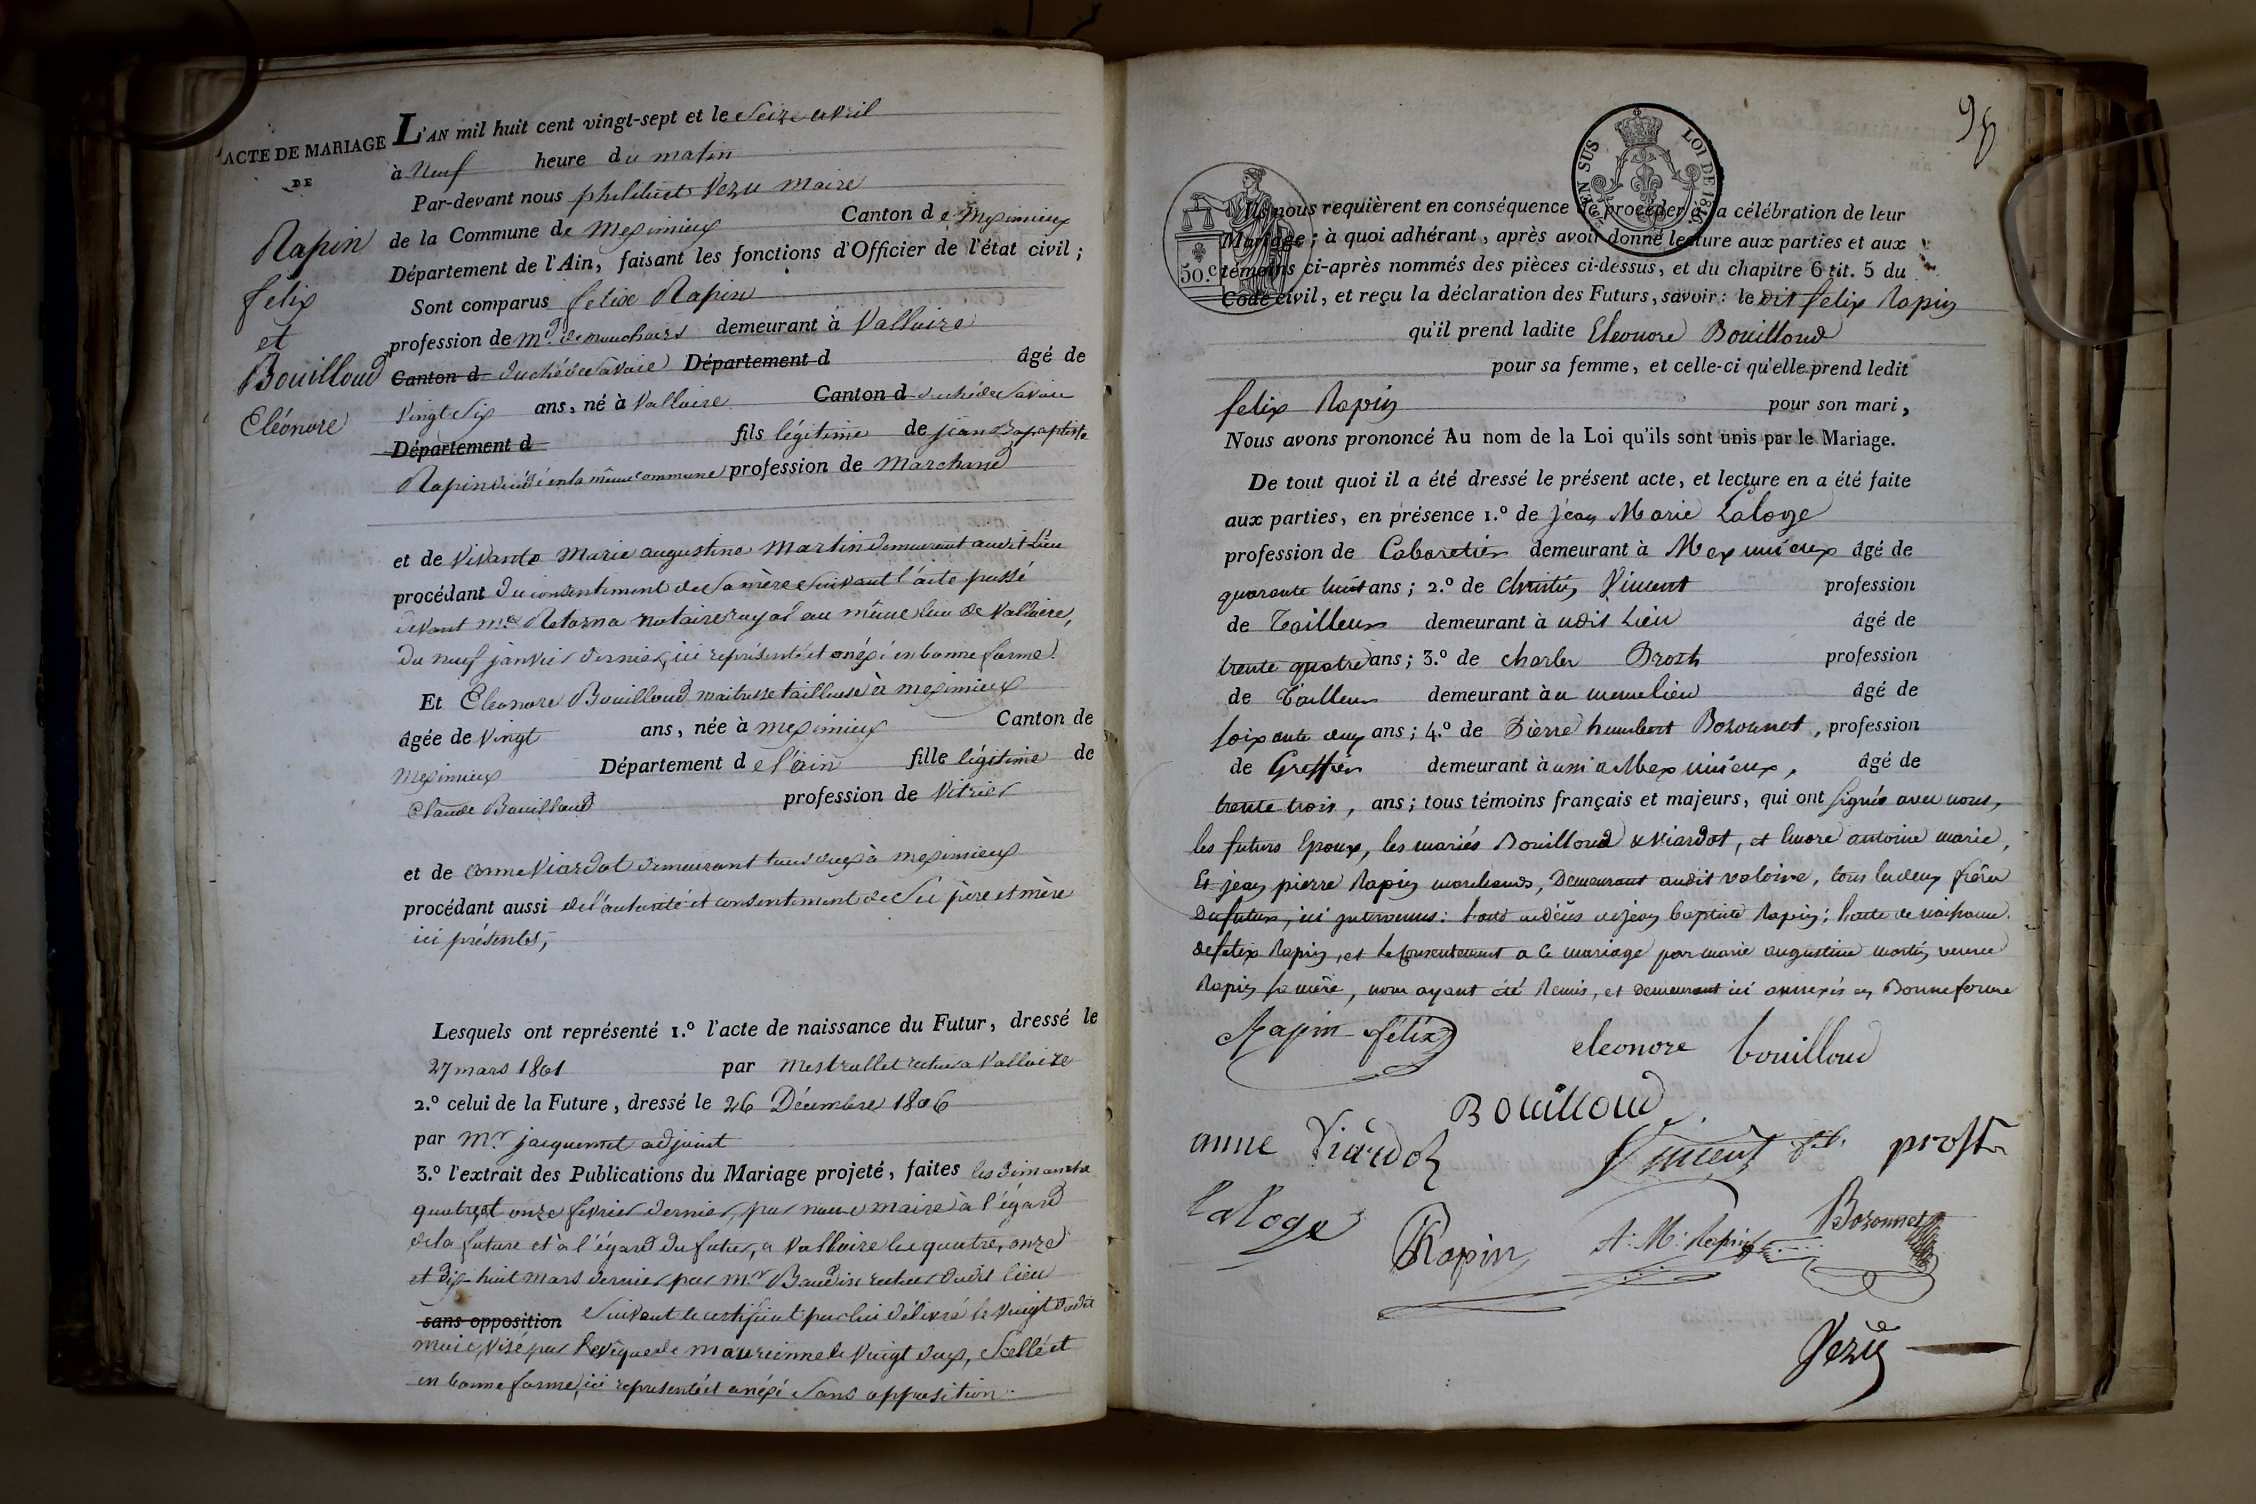 ACTE DE MARIAGE
DE
Rapin
felix
et
Bouilloud
Eléonore
L'AN mil huit cent vingt-sept et le Seize avril
à Neuf heure du matin
Par-devant nous philibert Vezu maire
de la Commune de Meximieux Canton de Meximieux
Département de l'Ain, faisant les fonctions d'Officier de l'état civil ;
Sont comparus felix Rapin
profession de md. de mouchoirs demeurant à Valloire
Canton d duché de Savoie Département d âgé de
Vingt Six ans, né à Valloire Canton d duché de Savoie
Département d fils légitime de jean Bapaptiste
Rapin décédé en la même commune profession de Marchand
et de Vivante Marie augustine Martin demeurant audit Lieu
procédant du consentement de Sa mère Suivant l'acte passé
devant me. Retorna notaire royal au même lieu de Valloire,
du neuf janvier dernier, ici représenté et anéxé en bonne forme.
Et Eleonore Bouilloud maitresse tailleuse à meximieux
âgée de Vingt ans, née à meximieux Canton de
Meximieux Département de l'ain fille légitime de
Claude Bouilloud profession de Vitrier
et de anne Viardot demeurant tous deux à meximieux
procédant aussi de l'autorité et consentement de Ses père et mère
ici présents,
Lesquels ont représenté 1.º l'acte de naissance du Futur, dressé le
27 mars 1801 par Mestrallet recteur a Valloire
2.º celui de la Future, dressé le 26 Décembre 1806
par Mr jacquemet adjoint
3.º l'extrait des Publications du Mariage projeté, faites les dimanche
quatre et onze fevrier dernier, par nous maire à l'égard
de la future et à l'égard du futur, a Valloire les quatre, onze
et dix-huit mars dernier par mr Baudin recteur dudit lieu
sans opposition Suivant le certificat par lui délivré le vingt dudit
mois, visé par l'evêque de maurienne le vingt deux, Scellé et
en bonne forme, ici representé et anéxé Sans opposition.
98
LOI DE 1816
50.c
Ils nous requièrent en conséquence de procéder à la célébration de leur
Mariage ; à quoi adhérant, après avoir donné lecture aux parties et aux
témoins ci-après nommés des pièces ci-dessus, et du chapitre 6 tit. 5 du
Code civil, et reçu la déclaration des Futurs, savoir : le dit felix Rapin
qu'il prend ladite Eleonore Bouilloud
pour sa femme, et celle-ci qu'elle prend ledit
felix Rapin pour son mari,
Nous avons prononcé Au nom de la Loi qu'ils sont unis par le Mariage.
De tout quoi il a été dressé le présent acte, et lecture en a été faite
aux parties, en présence 1.º de jean Marie Laloge
profession de Cabaretier demeurant à Meximieux âgé de
quarante huit ans ; 2.º de Vincent profession
de Tailleur demeurant à udit Lieu âgé de
trente quatre ans ; 3.º de charles Prost profession
de Tailleur demeurant à u meme lieu âgé de
soixante deux ans ; 4.º de Pierre humbert Bozonnet, profession
de Greffier demeurant à ussi a Meximieux, âgé de
trente trois, ans ; tous témoins français et majeurs, qui ont signés avec nous,
les futurs Epoux, les mariés Bouilloud & Viardot, et antoine marie,
Et jean pierre Rapin marchands, Demeurant audit valoire, tous les deux frères
du futur, ici intervenus : l'acte de décès de jean baptiste Rapin ; l'acte de naissance
de felix Rapin, et le Consentement a ce mariage par marie augustine martin veuve
Rapin sa mère, nous ayant été Remis, et demeurant ici annexés en Bonne forme
Rapin félix
eleonore bouilloud
Bouilloud
anne Viardot
Vincent
prost
Laloge
Rapin
A. M. Rapin
Bozonnet
Vezu